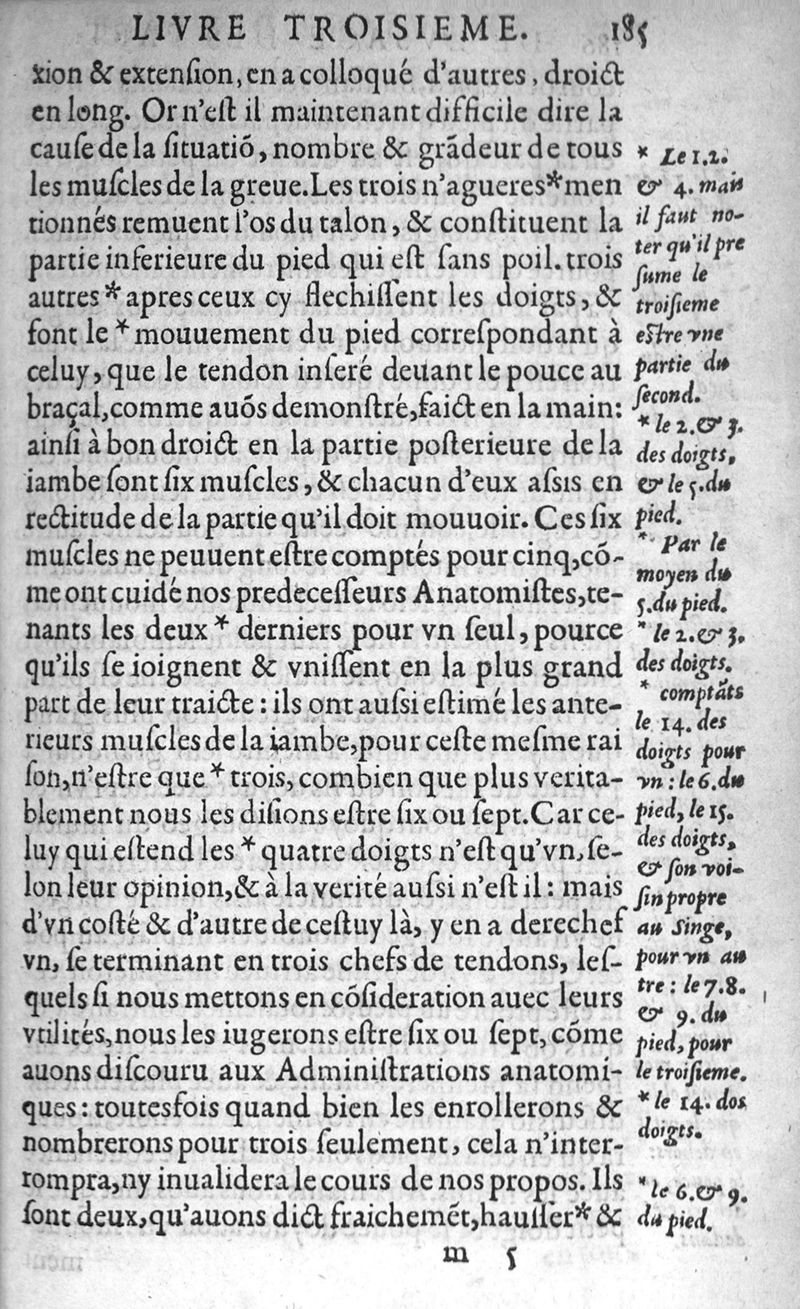 LIVRE TROISIEME. 185
xion & extenſion, en a colloqué d'autres, droict
en long. Or n'eſt il maintenant difficile dire la
cauſe de la ſituatiõ, nombre & grãdeur de tous
les muſcles de la greue. Les trois n'agueres*men
tionnés remuent l'os du talon, & conſtituent la
partie inferieure du pied qui eſt ſans poil. trois
autres * apres ceux cy flechiſſent les doigts, &
font le * mouuement du pied correſpondant à
celuy, que le tendon inſeré deuant le pouce au
braçal, comme auõs demonſtré, faict en la main:
ainſi à bon droict en la partie poſterieure de la
iambe ſont ſix muſcles, & chacun d'eux aſsis en
rectitude de la partie qu'il doit mouuoir. Ces ſix
muſcles ne peuuent eſtre comptés pour cinq, cõ-
me ont cuidé nos predeceſſeurs Anatomiſtes, te-
nants les deux * derniers pour vn ſeul, pource
qu'ils ſe ioignent & vniſſent en la plus grand
part de leur traicte : ils ont auſsi eſtimé les ante-
rieurs muſcles de la iambe, pour ceſte meſme rai
ſon, n'eſtre que * trois, combien que plus verita-
blement nous les diſions eſtre ſix ou ſept. Car ce-
luy qui eſtend les * quatre doigts n'eſt qu'vn, ſe-
lon leur opinion, & à la verité auſsi n'eſt il : mais
d'vn coſté & d'autre de ceſtuy là, y en a derechef
vn, ſe terminant en trois chefs de tendons, leſ-
quels ſi nous mettons en cõſideration auec leurs
vtilités, nous les iugerons eſtre ſix ou ſept, cõme
auons diſcouru aux Adminiſtrations anatomi-
ques : toutesfois quand bien les enrollerons &
nombrerons pour trois ſeulement, cela n'inter-
rompra, ny inualidera le cours de nos propos. Ils
ſont deux, qu'auons dict fraichemẽt, hauſſer * &
m 5
* Le 1.2.
& 4. mais
il faut no-
ter qu'il pre
ſume le
troiſieme
eſtre vne
partie du
ſecond.
* le 2. & 3.
des doigts,
& le 5. du
pied.
* Par le
moyen du
5. du pied.
* le 2. & 3.
des doigts.
* comptãts
le 14. des
doigts pour
vn : le 6. du
pied, le 15.
des doigts,
& ſon voi-
ſin propre
au Singe,
pour vn au
tre : le 7.8.
& 9. du
pied, pour
le troiſieme.
* le 14. dos
doigts.
* le 6. & 9.
du pied.